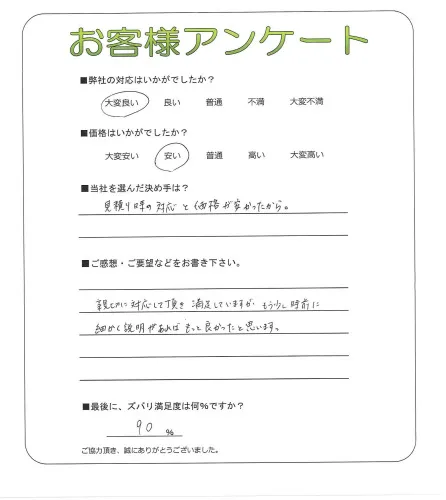 お客様アンケート
■弊社の対応はいかがでしたか？
大変良い 良い 普通 不満 大変不満
■価格はいかがでしたか？
大変安い 安い 普通 高い 大変高い
■当社を選んだ決め手は？
見積り時の対応と価格が安かったから。
■ご感想・ご要望などをお書き下さい。
親切に対応して頂き満足していますが、もう少し時前に
細かく説明があればもっと良かったと思います。
■最後に、ズバリ満足度は何%ですか？
90 %
ご協力頂き、誠にありがとうございました。